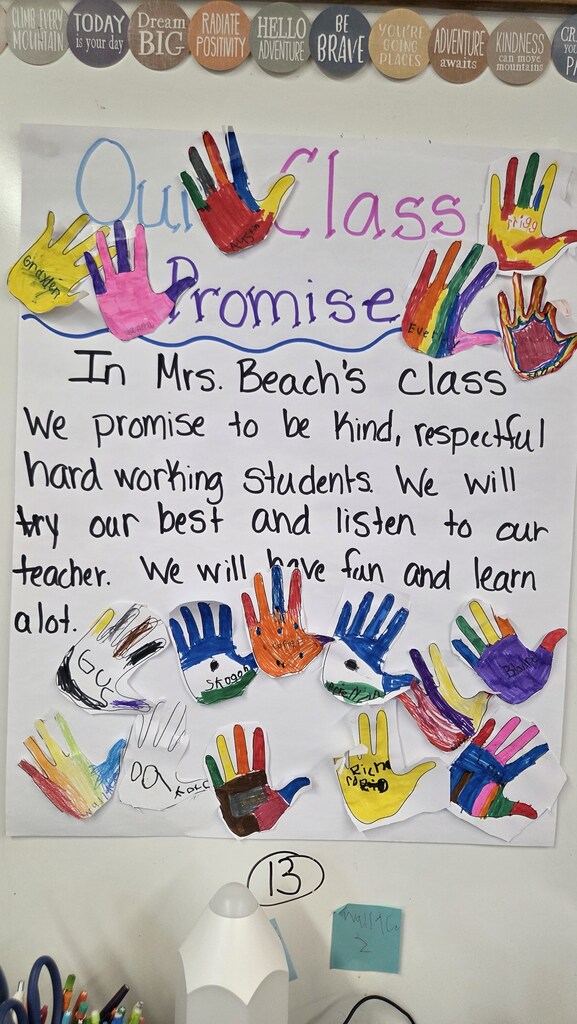 CLIMB EVERY MOUNTAIN
TODAY is your day
Dream BIG
RADIATE POSITIVITY
HELLO ADVENTURE
BE BRAVE
YOU'RE GOING PLACES
ADVENTURE awaits
KINDNESS can move mountains
Our Class
Promise
Grayden
Everly
In Mrs. Beach's class
We promise to be kind, respectful
hard working students. We will
try our best and listen to our
teacher. We will have fun and learn
a lot.
GUS
Blaine
13
2